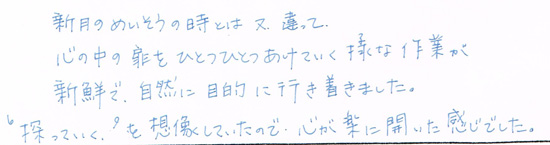 新月のめいそうの時とは又違って、
心の中の扉をひとつひとつあけていく様な作業が
新鮮で、自然に目的に行き着きました。
“探っていく、”を想像していたので、心が楽に開いた感じでした。